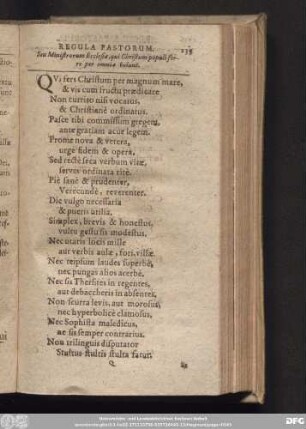 REGULA PASTORUM.
Seu Ministrorum Ecclesiæ, qui Christum populi
per omnia
QVi fers Christum per magnum mare,
& vis cum fructu prædicare
Non currito nisi vocatus,
& Christianè ordinatus.
Pasce tibi commissum gregem,
ante gratiam acue legem.
Prome nova & vetera,
urge fidem & opera,
Sed rectè seca verbum vitæ,
serves ordinata ritè.
Piè sanè & prudenter,
Verecundè, reverenter.
Dic vulgo necessaria
& pueris utilia,
Simplex, brevis & honestus,
vultu gestu sis modestus.
Nec utaris locis mille
aut verbis aulæ, fori, villæ.
Nec teipsum laudes superbè,
nec pungas alios acerbè.
Nec sis Thersites in regentes,
aut debaccheris in absentes,
Non scurra levis, aut morosus,
nec hyperbolicè clamosus,
Nec Sophista maledicus,
ne sis semper contrarius.
Non trilinguis disputator
Stultus stultis stulta fatur.
Q